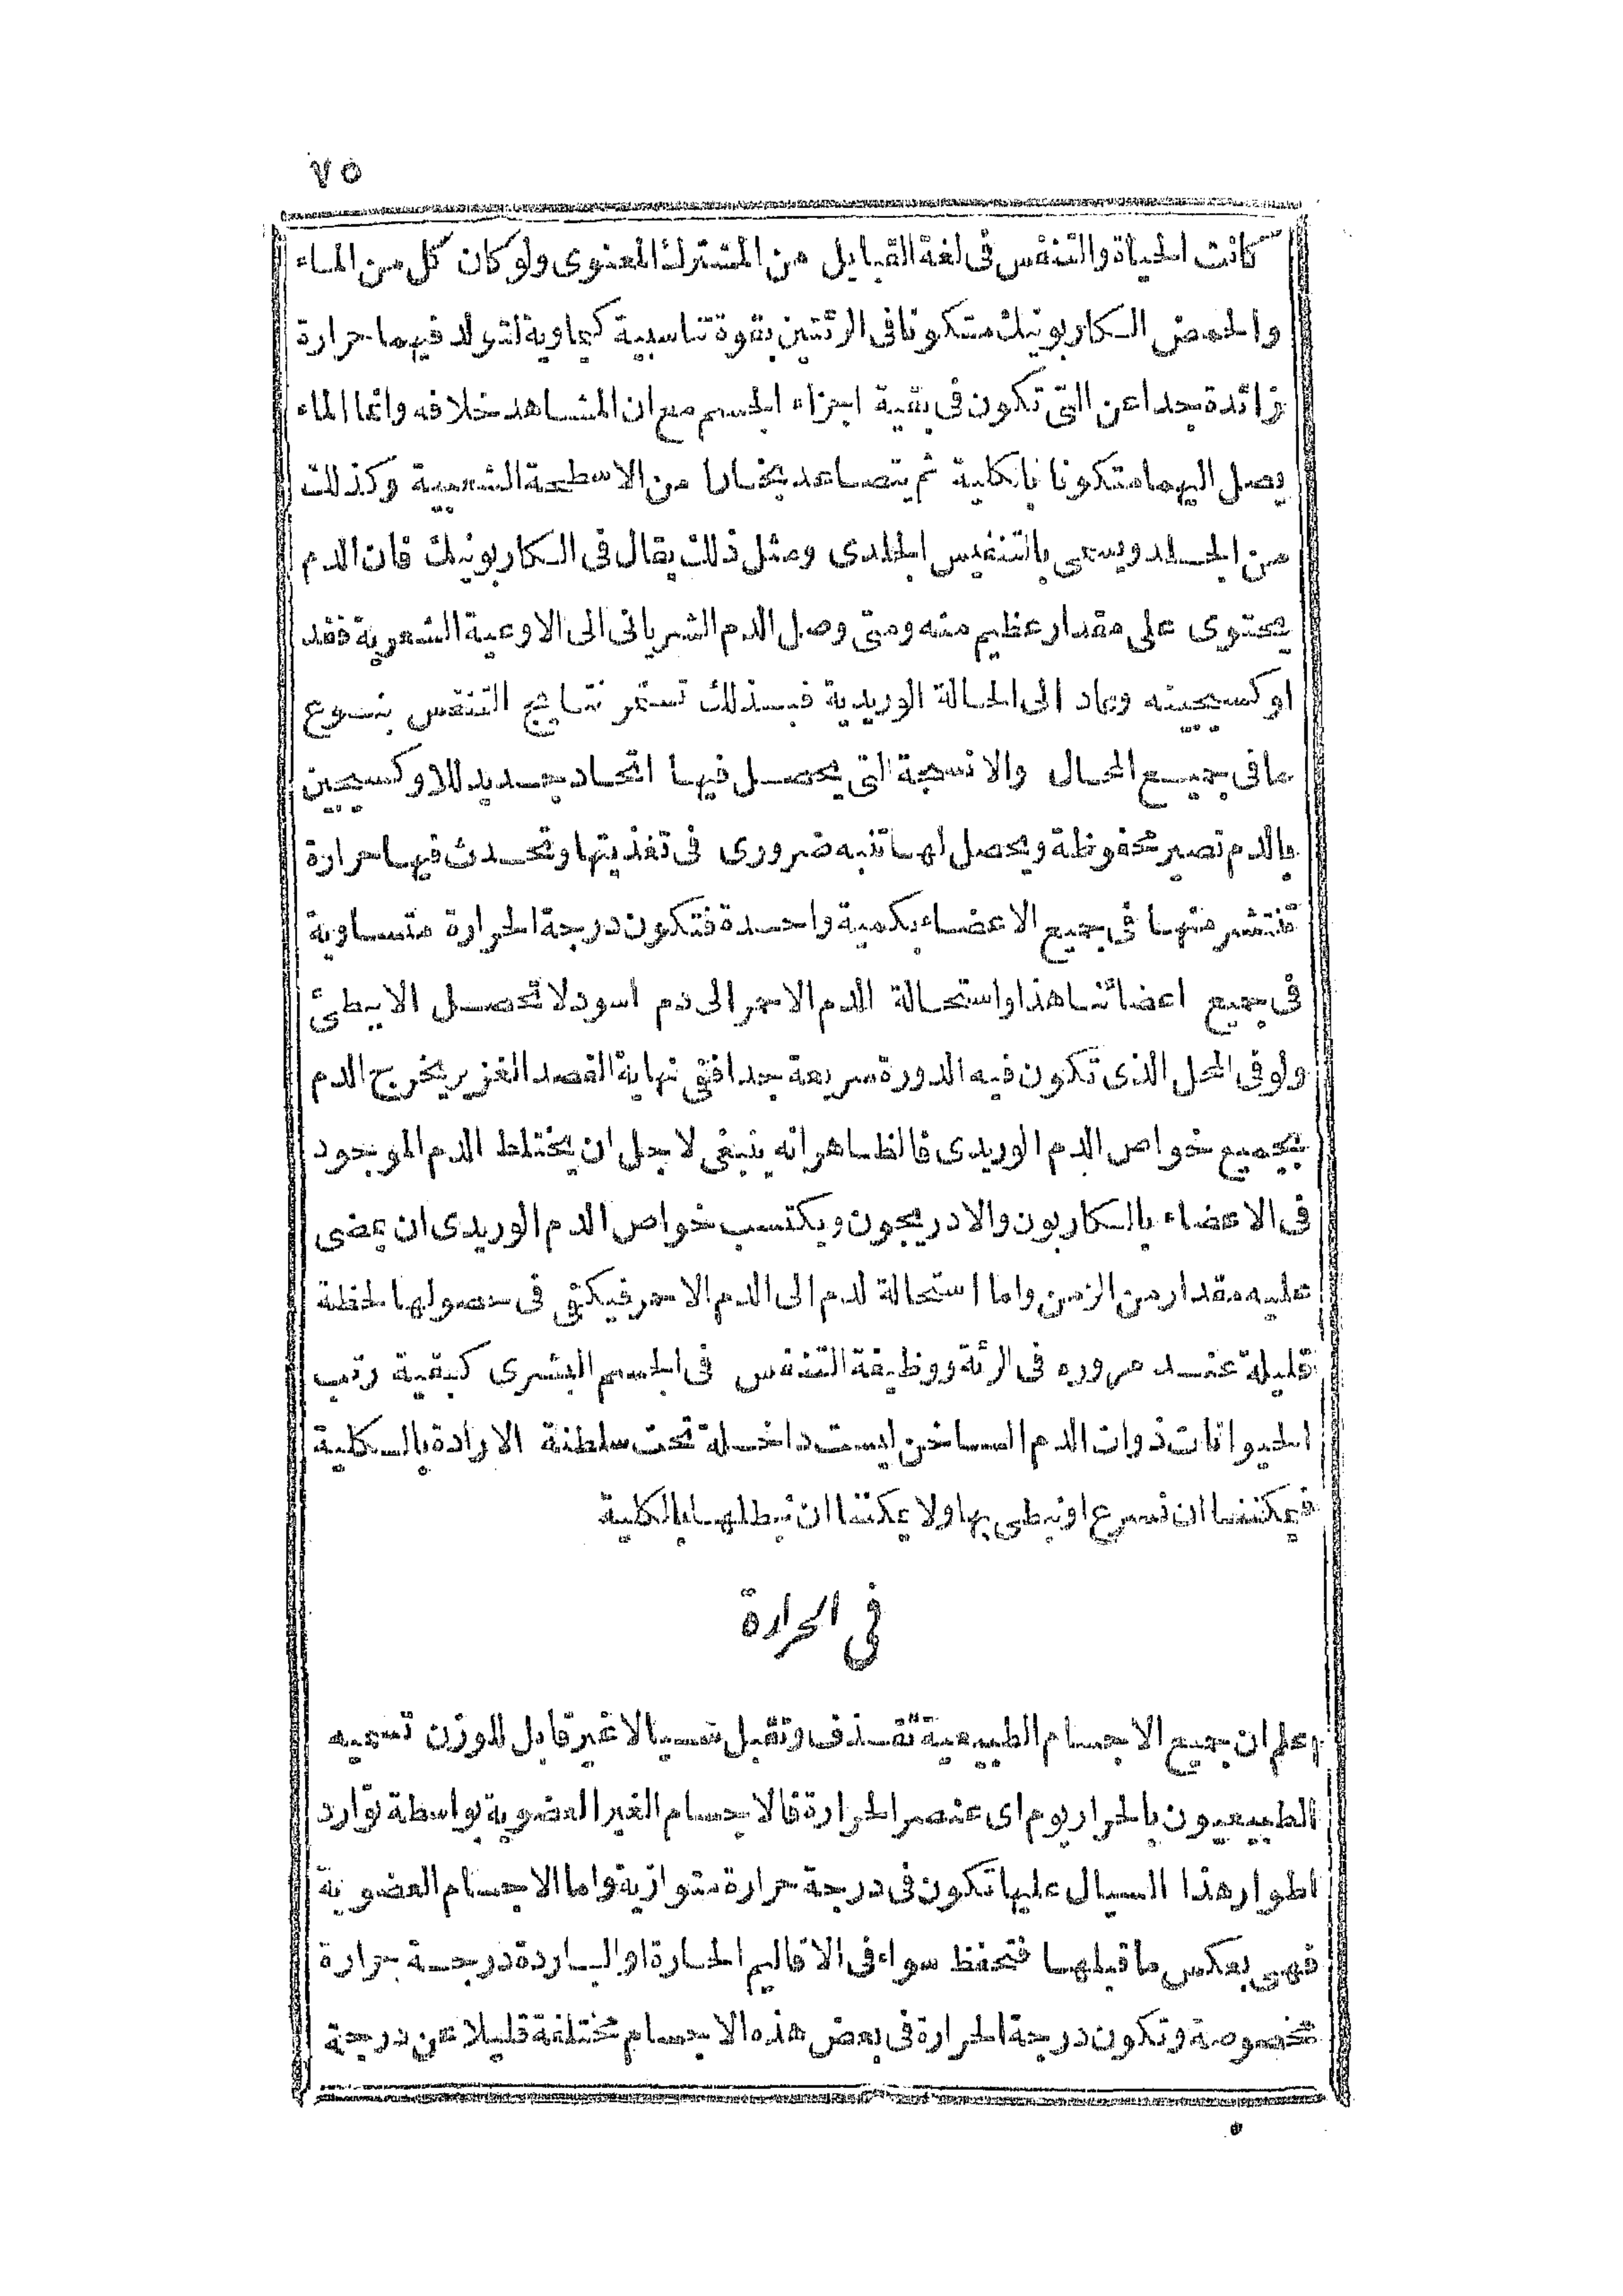 ٧٥
كانت الحياة والتنفس فى لغة القبايل من المشترك المعنوى ولو كان كل من الماء
والحمض الكاربونيك متكونا فى الرئتين بقوة تناسبية كيماوية لتولد فيهما حرارة
زائدة جدا عن التى تكون فى بقية اجزاء الجسم مع ان المشاهد خلافه وانما الماء
يصل اليهما متكونا بالكلية ثم يتصاعد بخارا من الاسطحة الشعبية وكذلك
من الجلد ويسمى بالتنفيس الجلدى ومثل ذلك يقال فى الكاربونيك فان الدم
يحتوى على مقدار عظيم منه ومتى وصل الدم الشريانى الى الاوعية الشعرية فقد
اوكسيجينه وعاد الى الحالة الوريدية فبذلك تستمر نتايج التنفس بنوع
ما فى جميع المحال والانسجة التى يحصل فيها اتحاد جديد للاوكسيجين
بالدم تصير محفوظة ويحصل لها تنبه ضرورى فى تغذيتها وتحدث فيها حرارة
تنتشر منها فى جميع الاعضاء بكمية واحدة فتكون درجة الحرارة متساوية
فى جميع اعضائنا هذا واستحالة الدم الاحمر الى دم اسود لا تحصل الا ببطئ
ولو فى المحل الذى تكون فيه الدورة سريعة جدا ففى نهاية الفصد الغزير يخرج الدم
بجميع خواص الدم الوريدى فالظاهر انه ينبغى لاجل ان يختلط الدم الموجود
فى الاعضاء بالكاربون والادريجون ويكتسب خواص الدم الوريدى ان يمضى
عليه مقدار من الزمن واما استحالة لدم الى الدم الاحمر فيكفى فى حصولها لحظة
قليلة عند مروره فى الرئة ووظيفة التنفس فى الجسم البشرى كبقية رتب
الحيوانات ذوات الدم الساخن ليست داخلة تحت سلطنة الارادة بالكلية
فيمكننا ان نسرع او نبطى بها ولا يمكننا ان نبطلها بالكلية
فى الحرارة
اعلم ان جميع الاجسام الطبيعية تقذف وتقبل سيالا غير قابل للوزن تسميه
الطبيعيون بالحراريوم اى عنصر الحرارة فالاجسام الغير العضوية بواسطة توارد
اطوار هذا السيال عليها تكون فى درجة حرارة متوازية واما الاجسام العضوية
فهى بعكس ما قبلها فتحفظ سواء فى الاقاليم الحارة او الباردة درجة حرارة
مخصوصة وتكون درجة الحرارة فى بعض هذه الاجسام مختلفة قليلا عن درجة